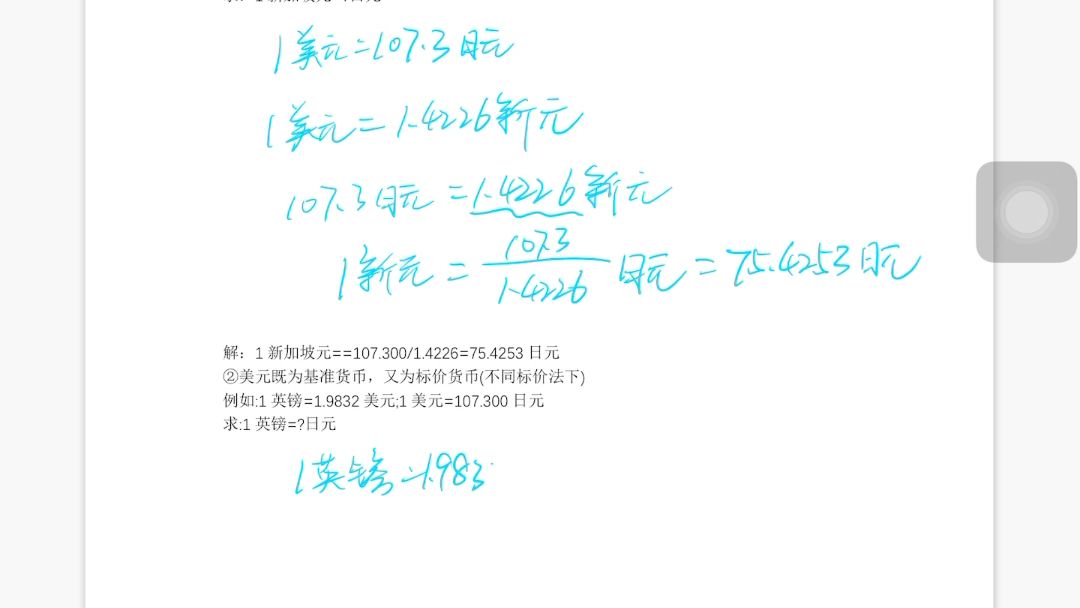 1美元=107.3日元
1美元=1.4226新元
107.3日元=1.4226新元
1新元=107.3/1.4226日元=75.4253日元
解：1 新加坡元==107.300/1.4226=75.4253 日元
②美元既为基准货币，又为标价货币(不同标价法下)
例如:1 英镑=1.9832 美元;1 美元=107.300 日元
求:1 英镑=?日元
1英镑=1.983